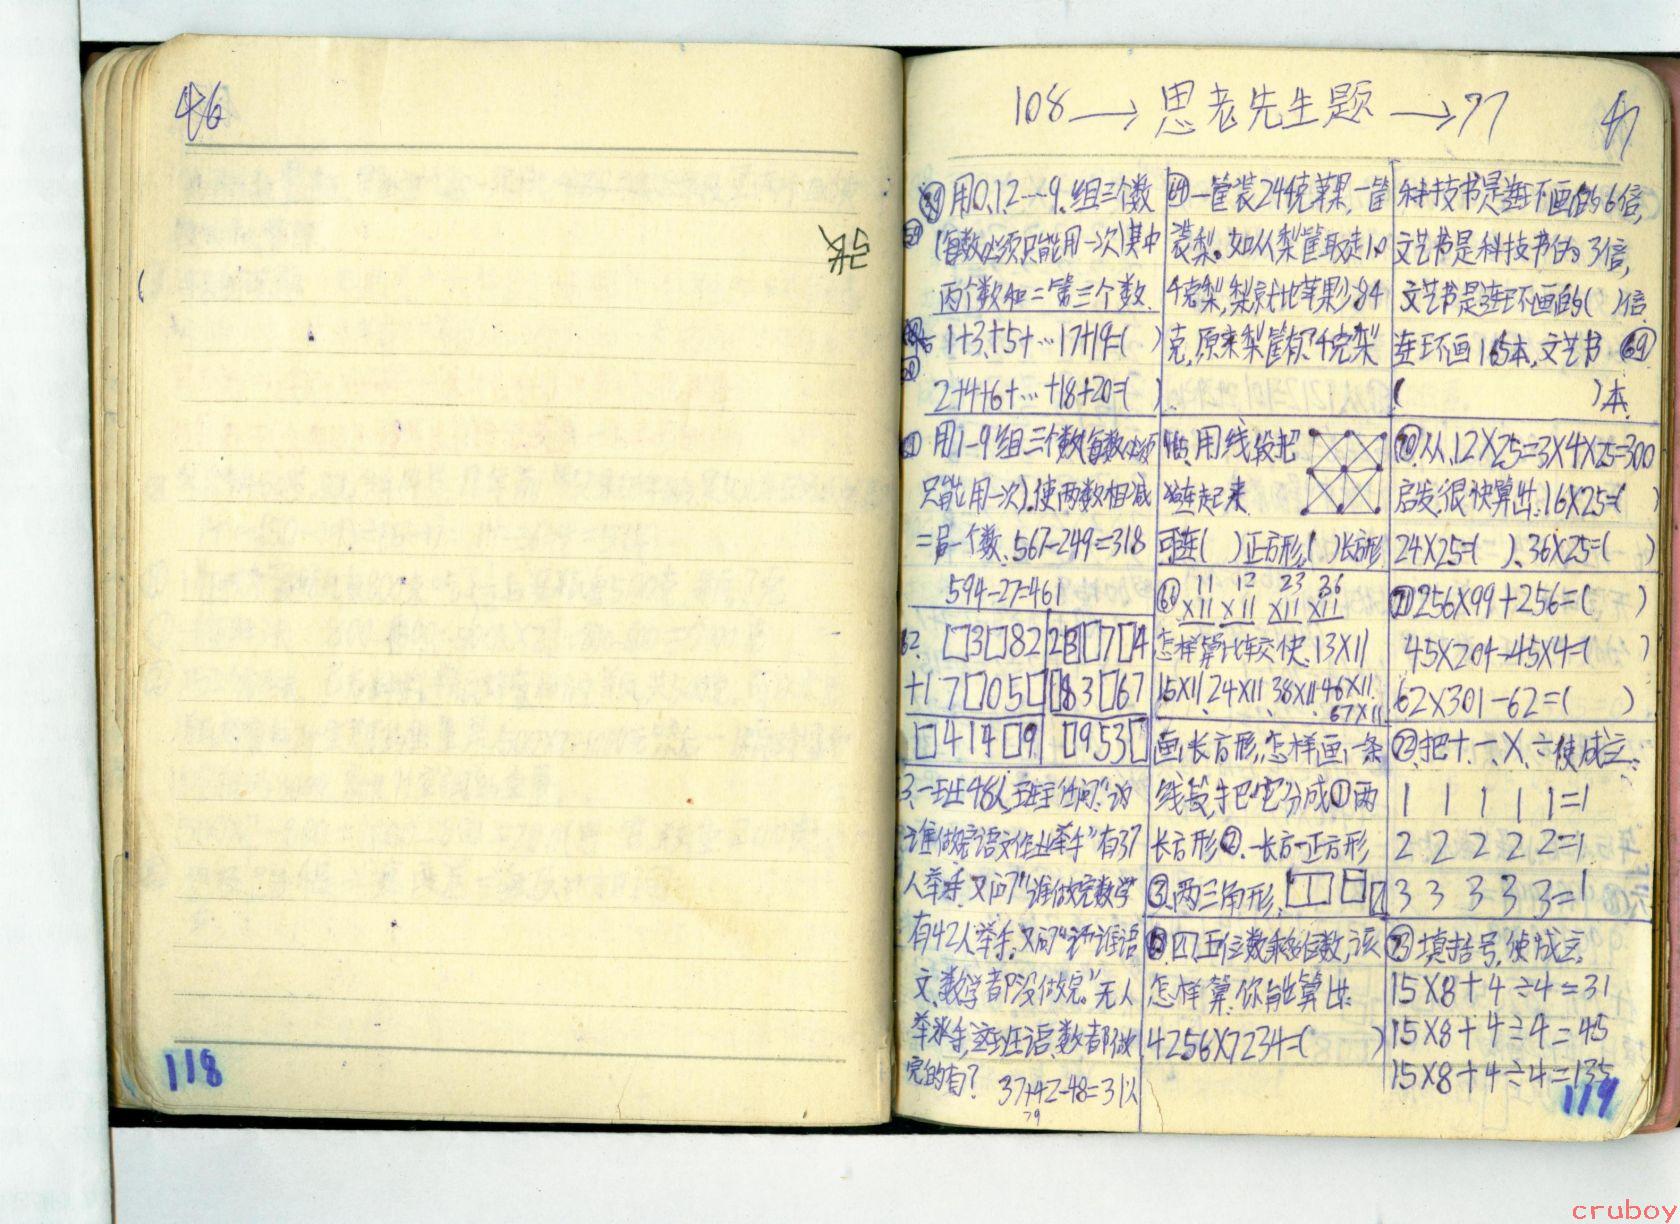 46
118
108→思老先生题→77
47
59 用0、1、2…9、组三个数
(每数必须只能用一次)其中
两个数和=第三个数.
1+3+5+…17+19=( )
2+4+6+…+18+20=( )
用1-9组三个数(每数必须
只能用一次).使两数相减
=另一个数.567-249=318
594-27=461
62. □3□82
+17□05□
□414□9
23□7□4
□83□67
□953□
3.一班48人,班主任问:"
谁做完语文作业举手"有37
人举手.又问"谁做完数学
有42人举手.又问"谁语
文、数学都没做完。"无人
举手,这班语、数都做
完的有?
37+42-48=31人
79
64 一筐装24千克苹果,一筐
装梨。如从梨筐取走10
千克梨,梨就比苹果少84
克,原来梨筐有?千克梨
用线段把
连起来
可连( )正方形,( )长方形
11 12 23 36
×11 ×11 ×11 ×11
怎样算比较快.13×11
15×11、24×11、38×11、46×11
67×11
画长方形,怎样画一条
线段,把它分成①两
长方形②、一长方一正方形
③.两三角形.
位数,该
怎样算.你能算出:
4256×7234=( )
科技书是连环画的6倍,
文艺书是科技书的3倍,
文艺书是连环画的( )倍.
连环画165本,文艺书 69
( )本.
70.从12×25=3×4×25=300
启发.很快算出:16×25=( )
24×25=( )、36×25=( )
71 256×99+256=( )
45×204-45×4=( )
62×301-62=( )
72.把+、-、×、÷使成立:
1 1 1 1 1=1
2 2 2 2 2=1
3 3 3 3 3=1
73 填括号,使成立.
15×8+4÷4=31
15×8+4÷4=45
15×8+4÷4=135
119
cruboy